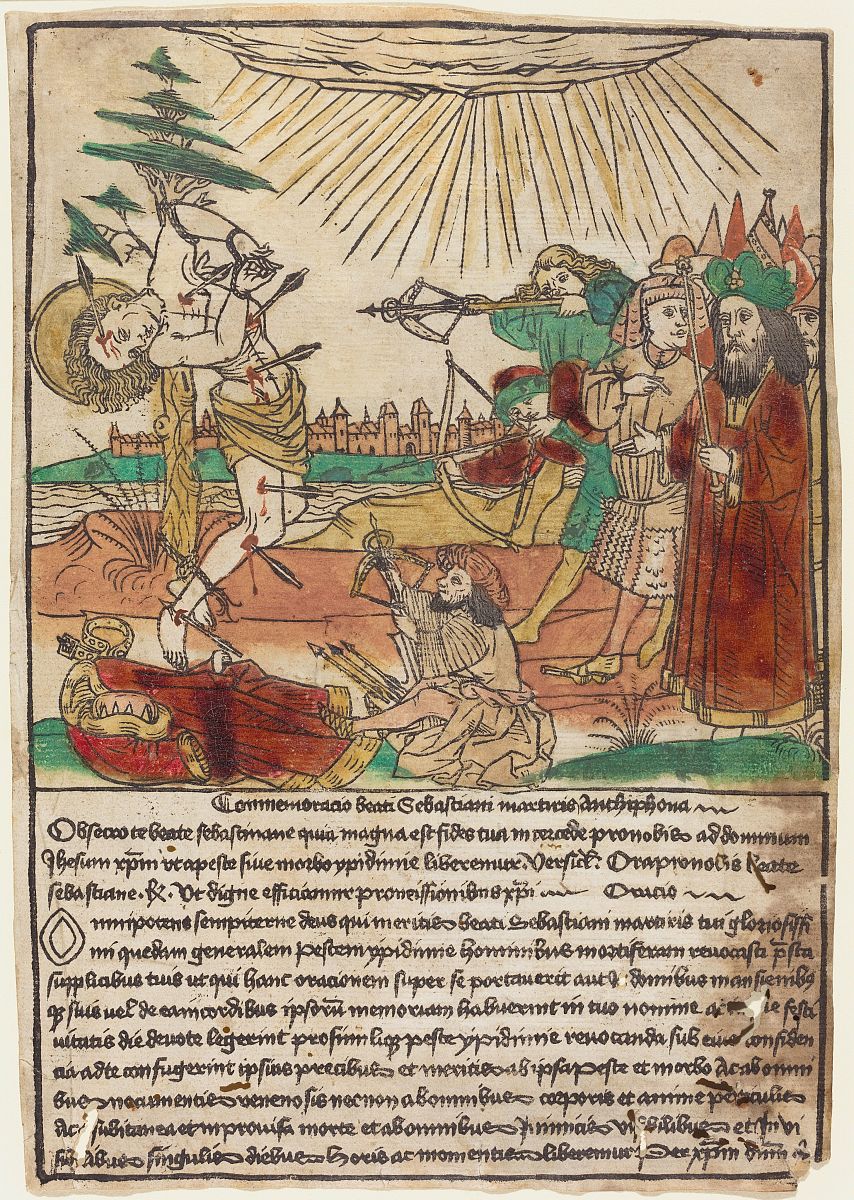 Conmemoracio beati Sebastiani martiris Anthiphona
Obsecro te beate sebastiane quia magna est fides tua intercede pro nobis ad dominum
Jhesum xpm ut a peste sive morbo ypidimie liberemur. Versicl. Ora pro nobis Beate
sebastiane. R. Ut digne efficiamur promissionibus xpi Oracio
Omnipotens sempiterne deus qui meritis beati Sebastiani martiris tui gloriosissi
mi quedam generalem Pestem ypidimie hominibus mortiferam revocasti
supplicibus tuis ut qui hanc orationem super se portaverit aut domibus mansionibq
suis vel de ea in cordibus ipsorum memoriam habuerint in tuo nomine festi
vitatis die devote legerint peste ypidimie revocanda sub eius confiden
cia ad te confugerint ipsius precibus et meritis ab ipsa Peste et morbo Ac ab omni
bus nocumentis venenosis necnon ab omnibus corporis et anime periculis
Ac subitanea et improvisa morte et ab omnibus Inimicis visibilibus et Invi
sibilibus singulis diebus horis ac momentis liberemur. Per xpm dnm